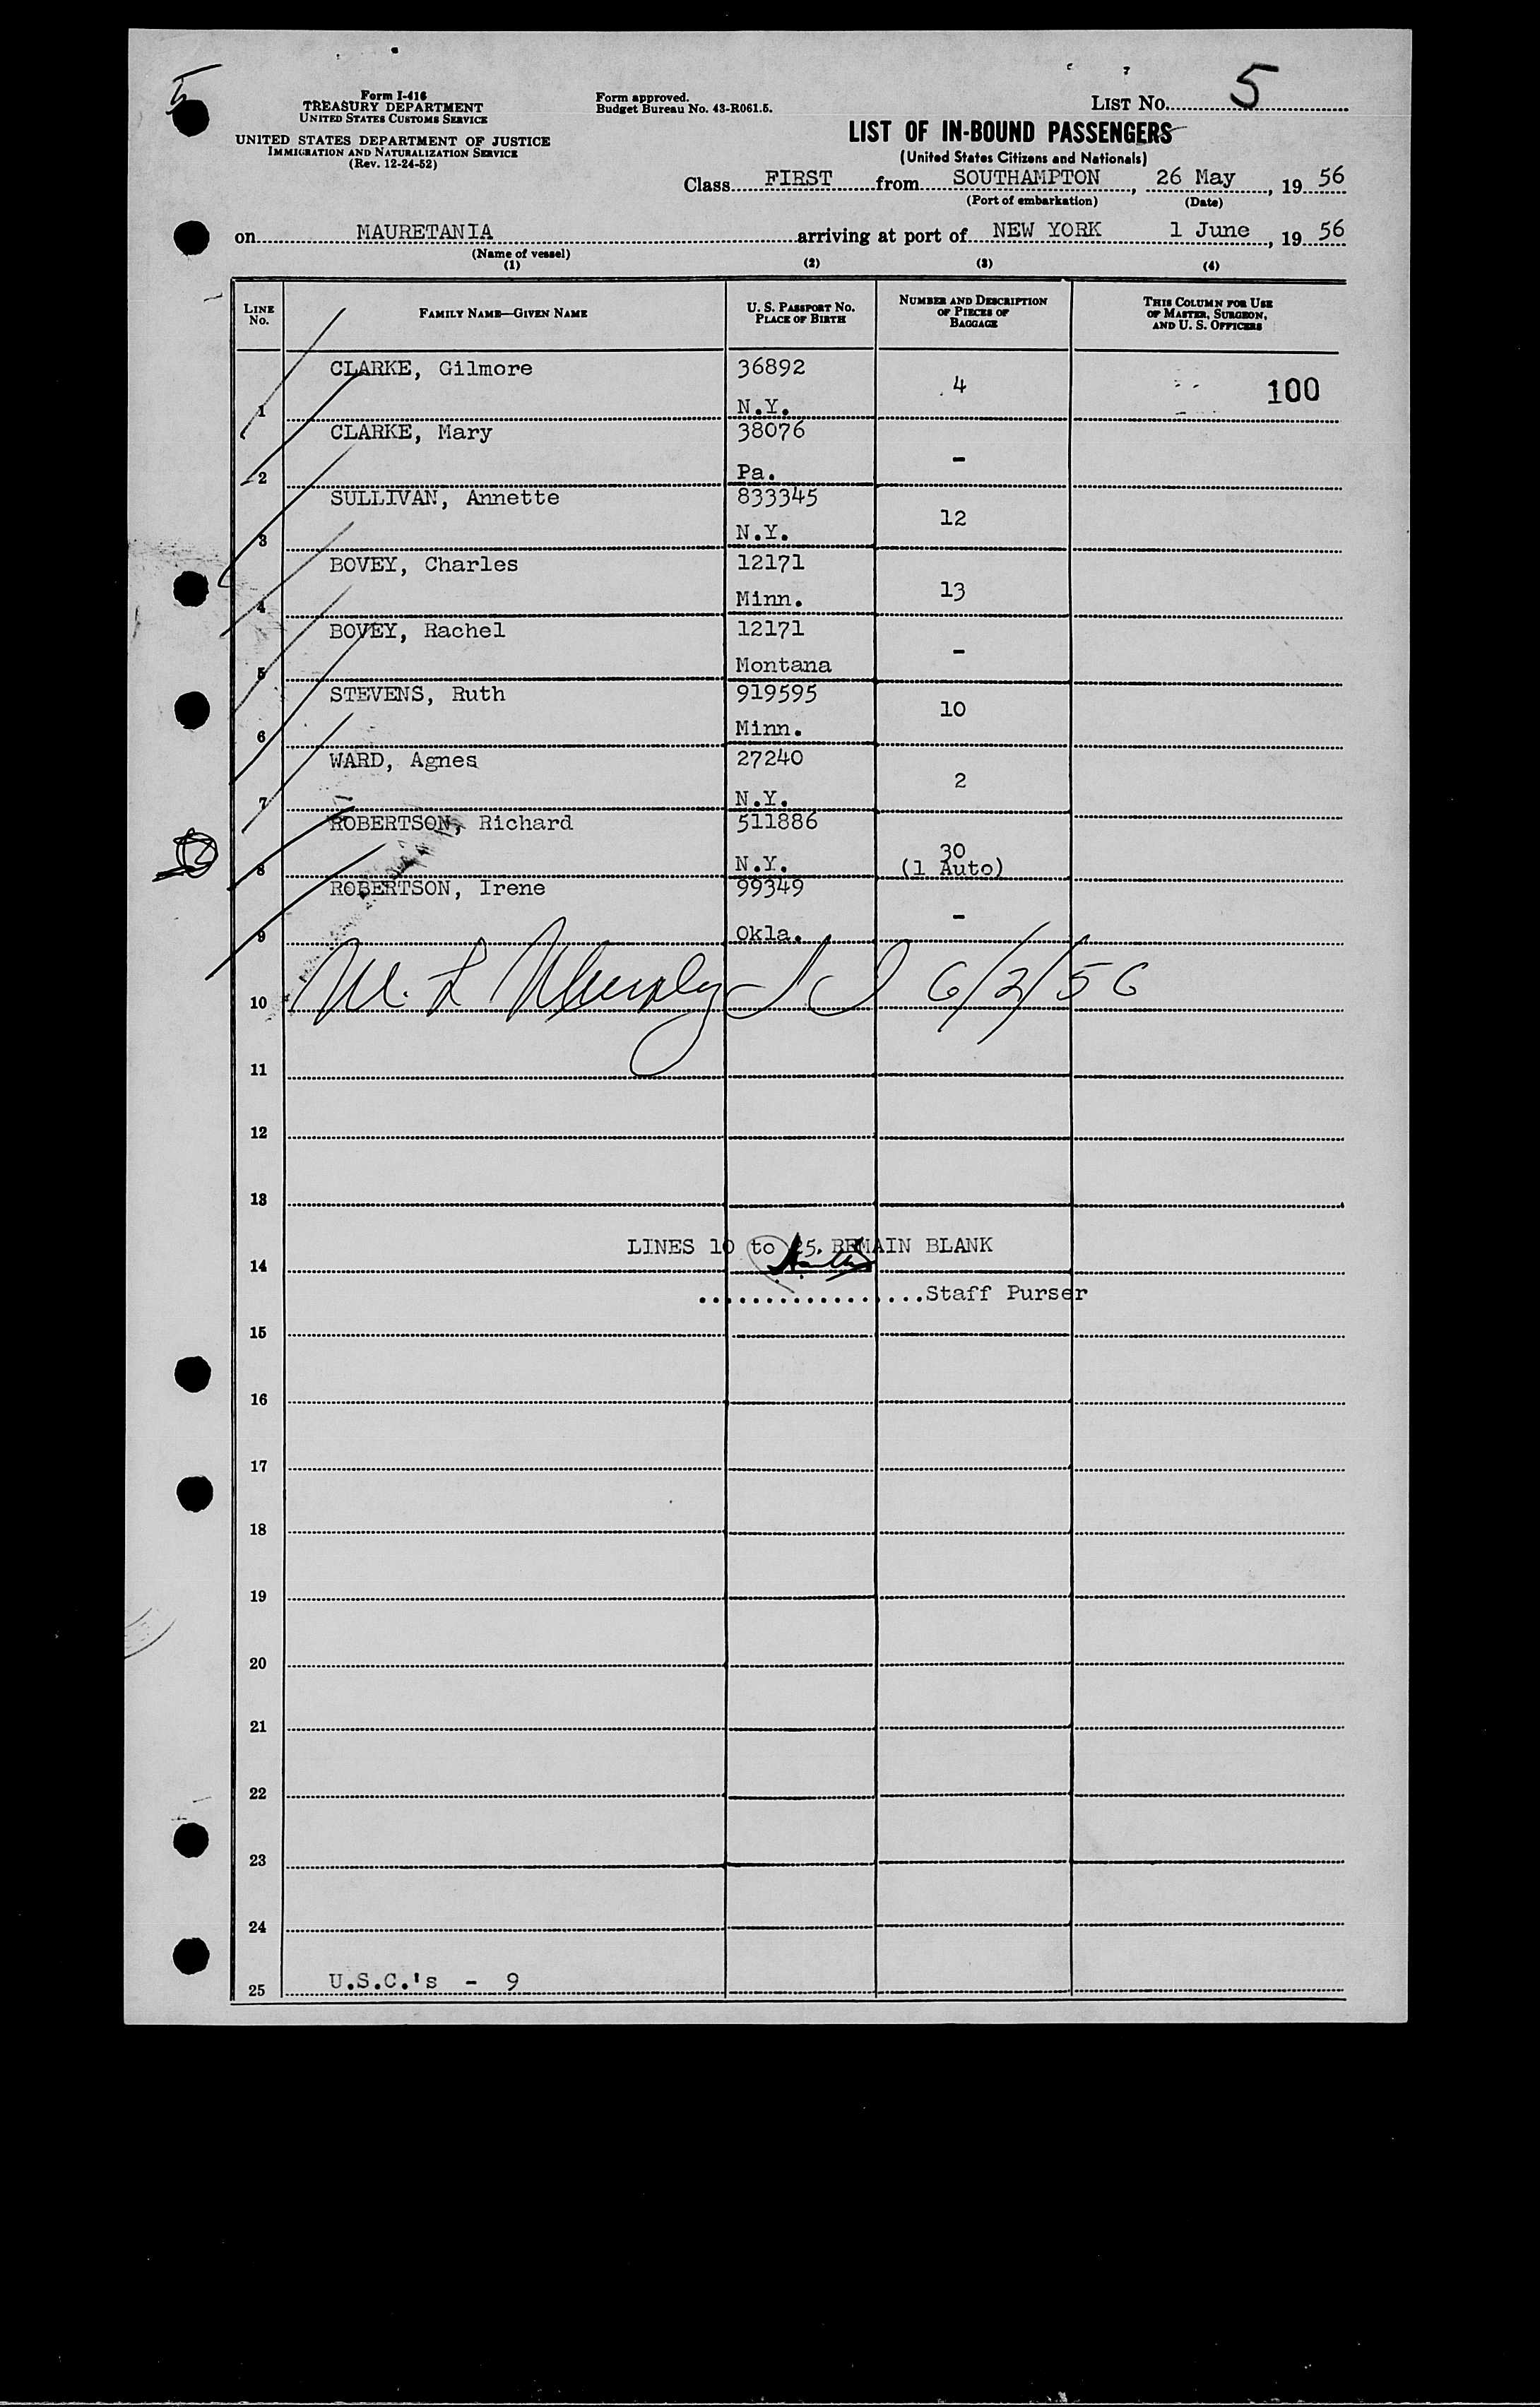 5
Form I-416
TREASURY DEPARTMENT
UNITED STATES CUSTOMS SERVICE
UNITED STATES DEPARTMENT OF JUSTICE
IMMIGRATION AND NATURALIZATION SERVICE
(Rev. 12-24-52)
Form approved.
Budget Bureau No. 43-R061.5.
LIST No. 5
LIST OF IN-BOUND PASSENGERS
(United States Citizens and Nationals)
Class FIRST from SOUTHAMPTON, 26 May, 19 56
(Port of embarkation) (Date)
on MAURETANIA arriving at port of NEW YORK 1 June, 19 56
(Name of vessel)
(1) (2) (3) (4)
LINE No. FAMILY NAME—GIVEN NAME U. S. PASSPORT NO. PLACE OF BIRTH NUMBER AND DESCRIPTION OF PIECES OF BAGGAGE THIS COLUMN FOR USE OF MASTER, SURGEON, AND U. S. OFFICERS
1 CLARKE, Gilmore 36892 N.Y. 4 100
2 CLARKE, Mary 38076 Pa. -
3 SULLIVAN, Annette 833345 N.Y. 12
4 BOVEY, Charles 12171 Minn. 13
5 BOVEY, Rachel 12171 Montana -
6 STEVENS, Ruth 919595 Minn. 10
7 WARD, Agnes 27240 N.Y. 2
8 ROBERTSON, Richard 511886 N.Y. 30 (1 Auto)
9 ROBERTSON, Irene 99349 Okla. -
10 M. L Murphy 6/2/56
11
12
13
LINES 10 to 25. REMAIN BLANK
14
Staff Purser
15
16
17
18
19
20
21
22
23
24
25 U.S.C.'s - 9